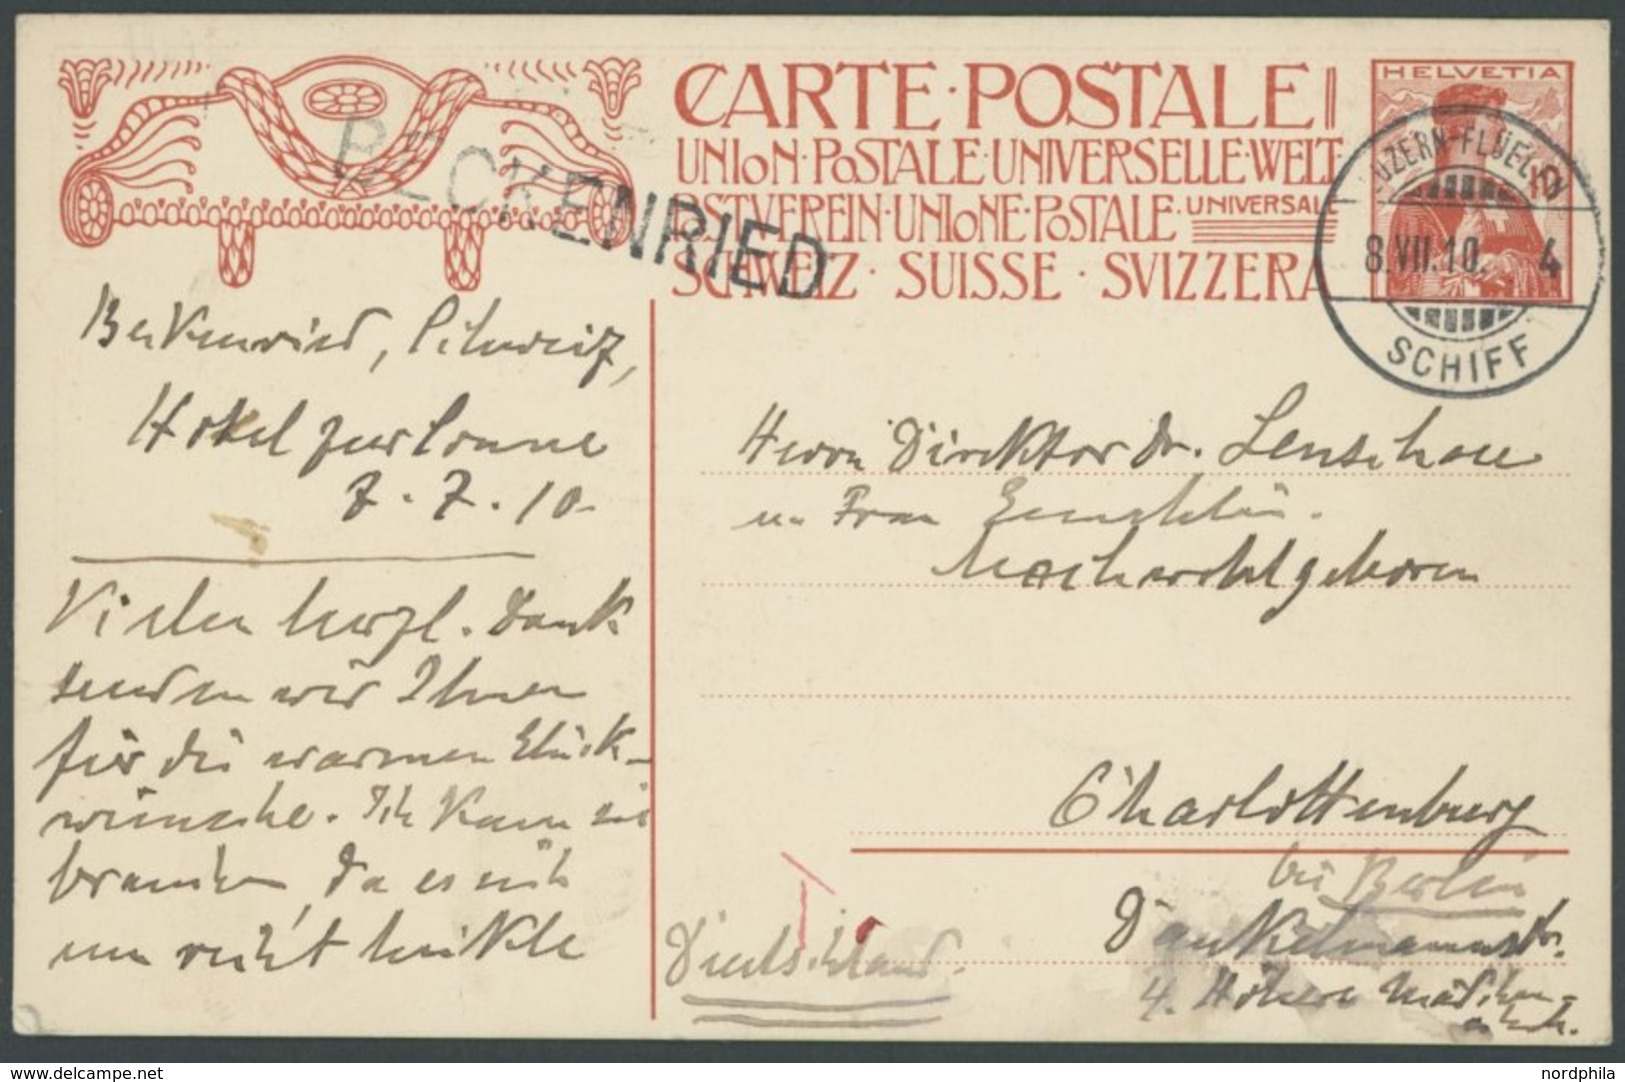 CARTE · POSTALE
UNION · POSTALE · UNIVERSELLE · WELT-
POSTVEREIN · UNIONE · POSTALE · UNIVERSALE
SCHWEIZ · SUISSE · SVIZZERA
HELVETIA
LUZERN-FLÜELEN
8.VII.10. 4
SCHIFF
BECKENRIED
Beckenried, Schweiz,
Hotel zur Sonne
7.7.10.
Vielen herzl. Dank
senden wir Ihnen
für die warmen Glück-
wünsche. Ich kann sie
brauchen, da es sich
um recht
Herrn Direktor Dr. Lenschau
u. Frau Gemahlin.
Hochwohlgeboren
Charlottenburg
bei Berlin
Danckelmannstr.
4. Höhere Mädchen-
Deutschland.
www.delcampe.net
nordphila